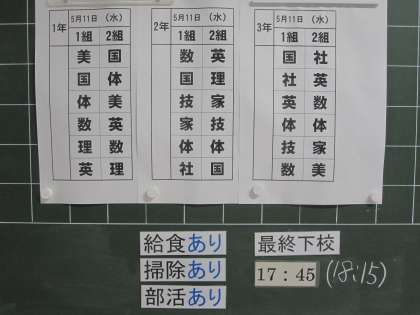 1年 5月11日（水）
1組 2組
美 国
国 体
体 美
数 英
理 数
英 理
2年 5月11日（水）
1組 2組
数 英
英 理
技 家
家 技
体 体
社 国
3年 5月11日（水）
1組 2組
国 社
社 英
英 数
体 体
技 家
数 美
給食あり
掃除あり
部活あり
最終下校
17：45 (18:15)